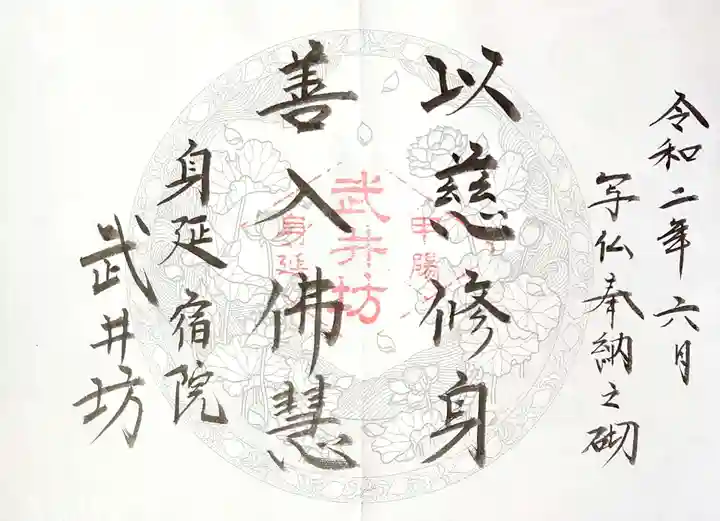 令和二年六月
写仏奉納之砌
以慈修身
善入佛慧
身延宿院
武井坊
甲陽
武井坊
身延